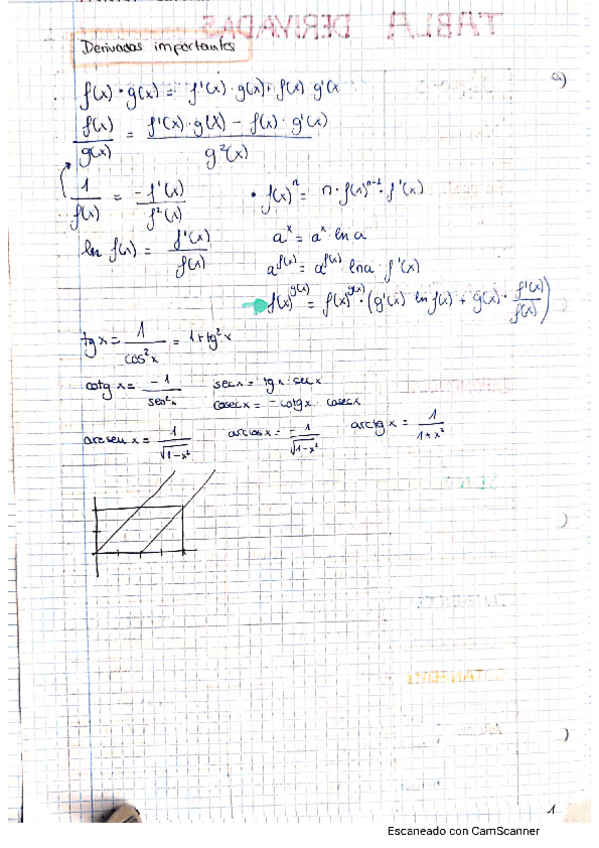 TABLA DERIVADAS
Derivadas importantes
f(x) · g(x) = f'(x) · g(x) + f(x) · g'(x
f(x)/g(x) = f'(x) · g(x) - f(x) · g'(x) / g²(x)
1/f(x) = -f'(x)/f²(x) • f(x)ⁿ = n · f(x)ⁿ⁻¹ · f'(x)
ln f(x) = f'(x)/f(x) aˣ = aˣ ln a
a^f(x) = a^f(x) lna · f'(x)
f(x)^g(x) = f(x)^g(x) · (g'(x) ln f(x) + g(x) · f'(x)/f(x))
tg x = 1/cos²x = 1+tg²x
cotg x = -1/sen²x sec x = tg x · sec x
cosec x = -cotg x · cosec x
arcsen x = 1/√1-x² arccos x = -1/√1-x² arctg x = 1/1+x²
1
Escaneado con CamScanner